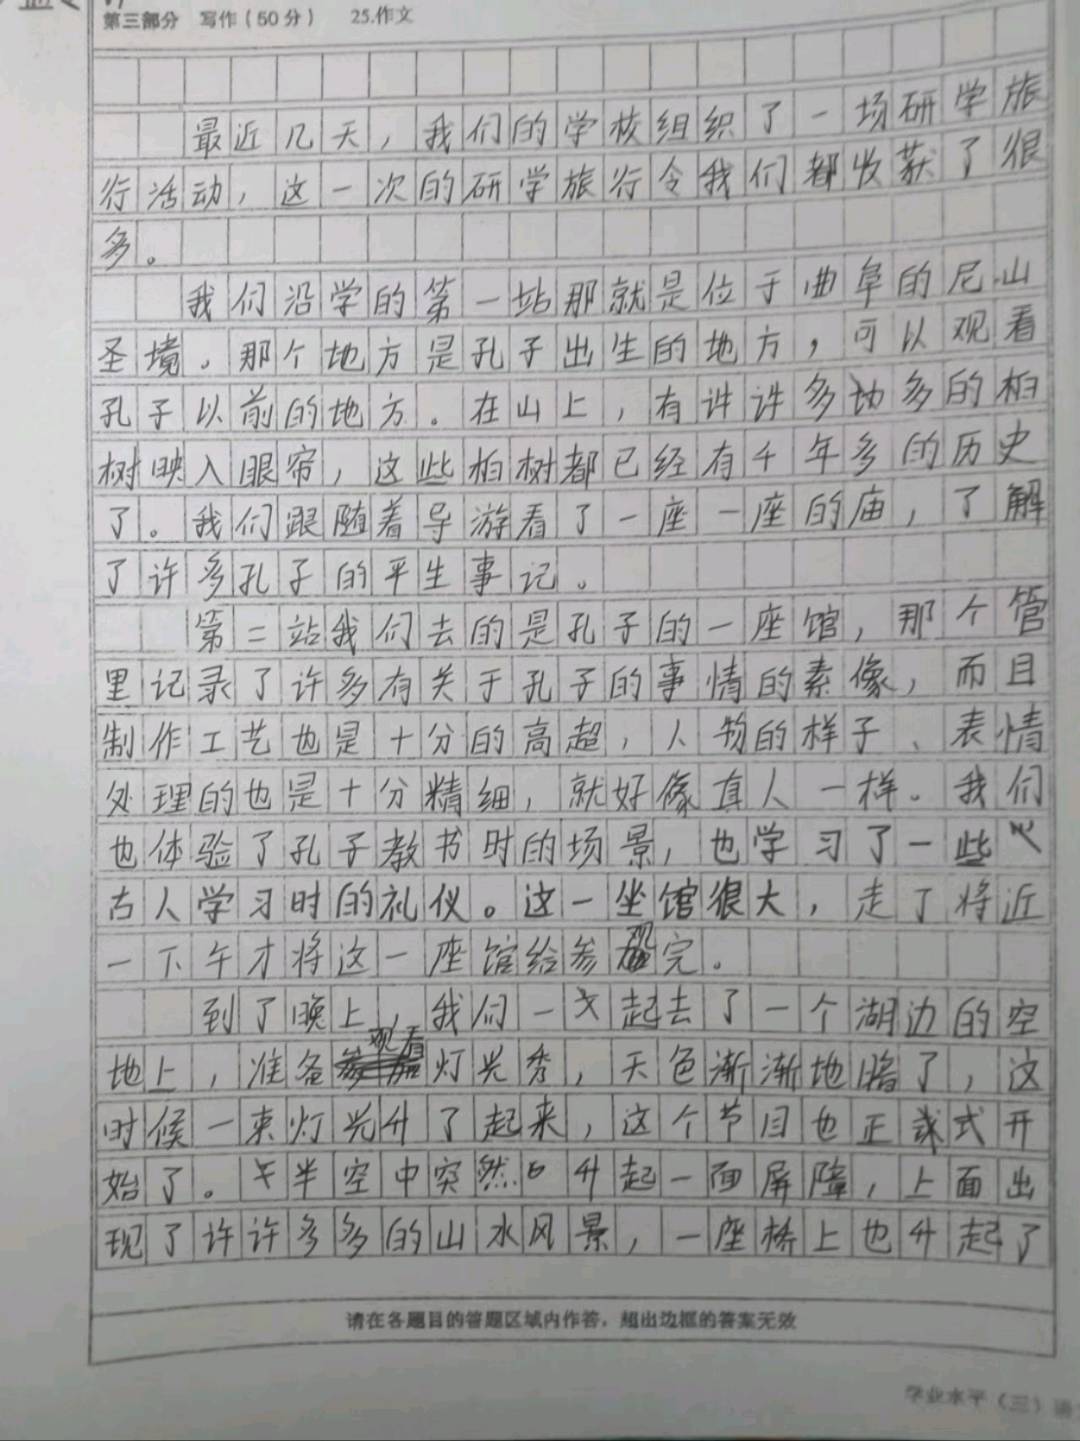 第三部分 写作（50分） 25.作文
最近几天，我们的学校组织了一场研学旅
行活动，这一次的研学旅行令我们都收获了很
多。
我们沿学的第一站那就是位于曲阜的尼山
圣境。那个地方是孔子出生的地方，可以观看
孔子以前的地方。在山上，有许许多多的柏
树映入眼帘，这些柏树都已经有千年多的历史
了。我们跟随着导游看了一座一座的庙，了解
了许多孔子的平生事记。
第二站我们去的是孔子的一座馆，那个管
里记录了许多有关于孔子的事情的素像，而且
制作工艺也是十分的高超，人物的样子、表情
处理的也是十分精细，就好像真人一样。我们
也体验了孔子教书时的场景，也学习了一些
古人学习时的礼仪。这一坐馆很大，走了将近
一下午才将这一座馆给参观完。
到了晚上，我们一起去了一个湖边的空
地上，准备观看灯光秀，天色渐渐地暗了，这
时候一束灯光升了起来，这个节目也正式开
始了。半空中突然升起一面屏障，上面出
现了许许多多的山水风景，一座桥上也升起了
请在各题目的答题区域内作答，超出边框的答案无效
学业水平（三）语